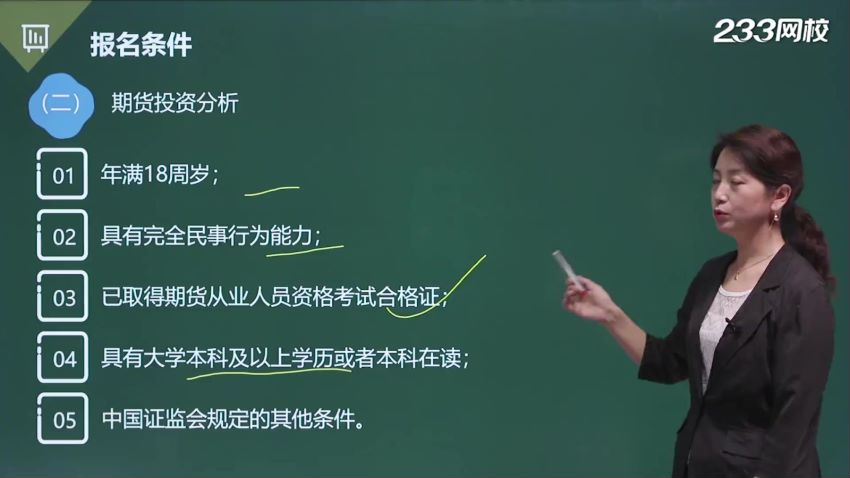 报名条件
233网校
（二）
期货投资分析
01 年满18周岁；
02 具有完全民事行为能力；
03 已取得期货从业人员资格考试合格证；
04 具有大学本科及以上学历或者本科在读；
05 中国证监会规定的其他条件。